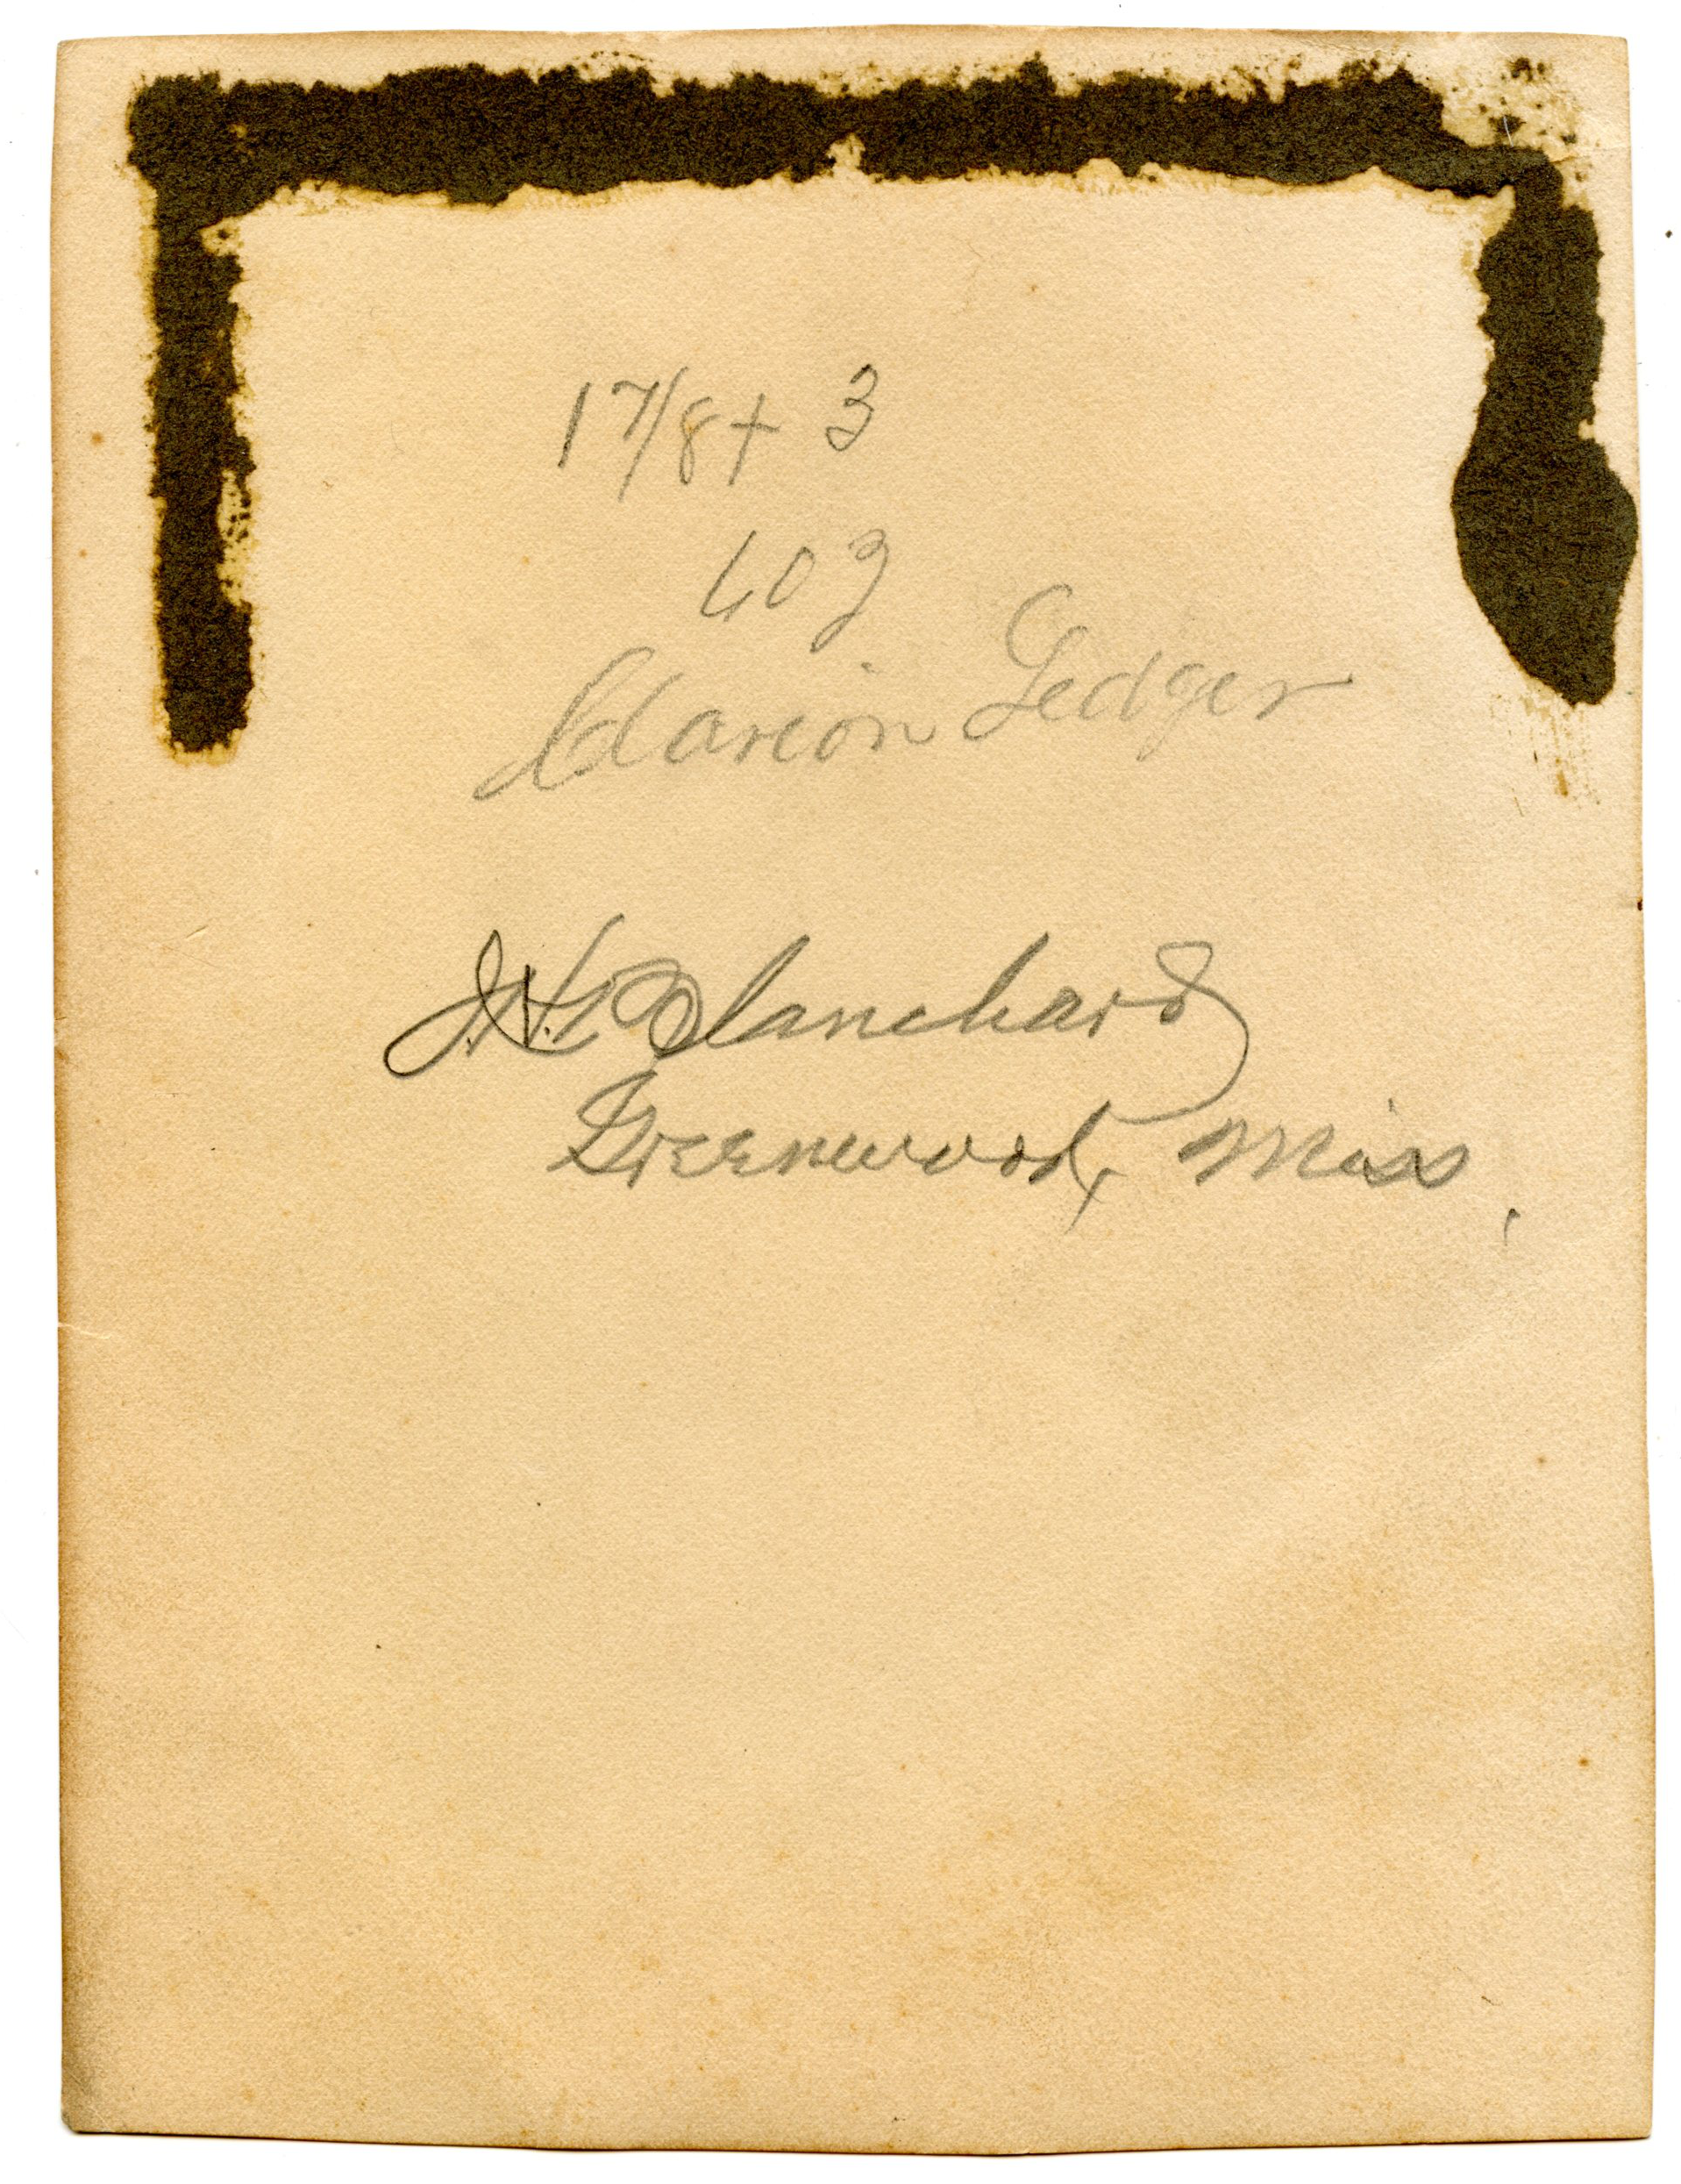 1 7/8 + 3
603
Clarion Ledger
J. H. Blanchard
Greenwood, Miss.